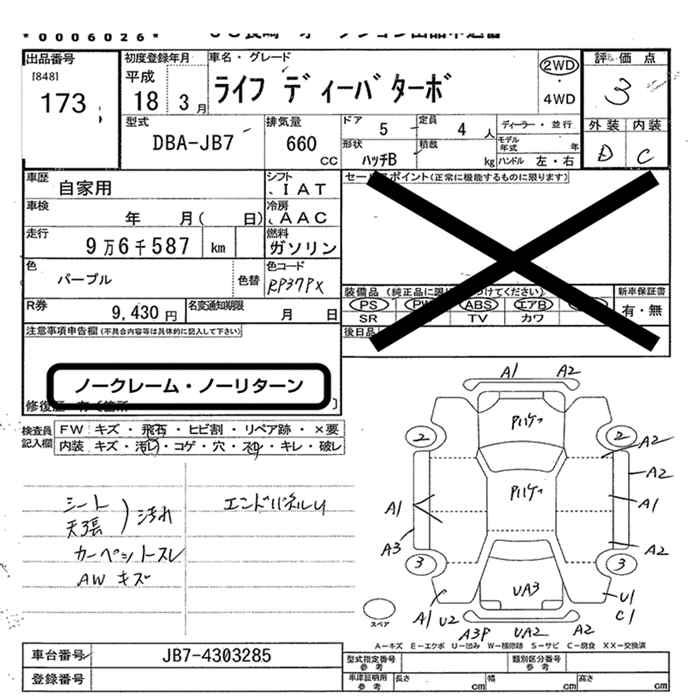 *0006026*
出品番号
[848]
173
初度登録年月
平成
18 3月
車名・グレード
ライフ ディーバターボ
2WD
・
4WD
評価点
3
外装 内装
D C
型式
DBA-JB7
排気量
660
cc
ドア
5
定員
4 人
形状
ハッチB
積載
kg
ディーラー・並行
モデル年式 年
ハンドル 左・右
車歴
自家用
シフト
IAT
車検
年 月( 日)
冷房
AAC
走行
9万6千587 km
燃料
ガソリン
色
パープル
色替
色コード
RP37PX
R券
9,430円
名変通知期限
月 日
セールスポイント(正常に機能するものに限ります)
装備品
PS PW ABS エアB
SR TV カワ
新車保証書
有・無
後日品
注意事項申告欄(不具合内容等は具体的に記入して下さい)
ノークレーム・ノーリターン
修復歴
検査員記入欄
FW キズ・飛石・ヒビ割・リペア跡・×要
内装 キズ・汚レ・コゲ・穴・スレ・キレ・破レ
シート
天張 ) 汚れ
カーペットスレ
AW キズ
エンドパネルU
A1 A2
2 2
A2
A2
A1 A1
A3 A2
3 3
UA3
A1 U2 U1
C1
A3P UA2 A2
スペア
A=キズ E=エクボ U=凹み W=補修跡 S=サビ C=腐食 XX=交換済
車台番号
JB7-4303285
登録番号
型式指定番号
参考
類別区分番号
参考
車庫証明用
参考
長さ cm
幅 cm
高さ cm